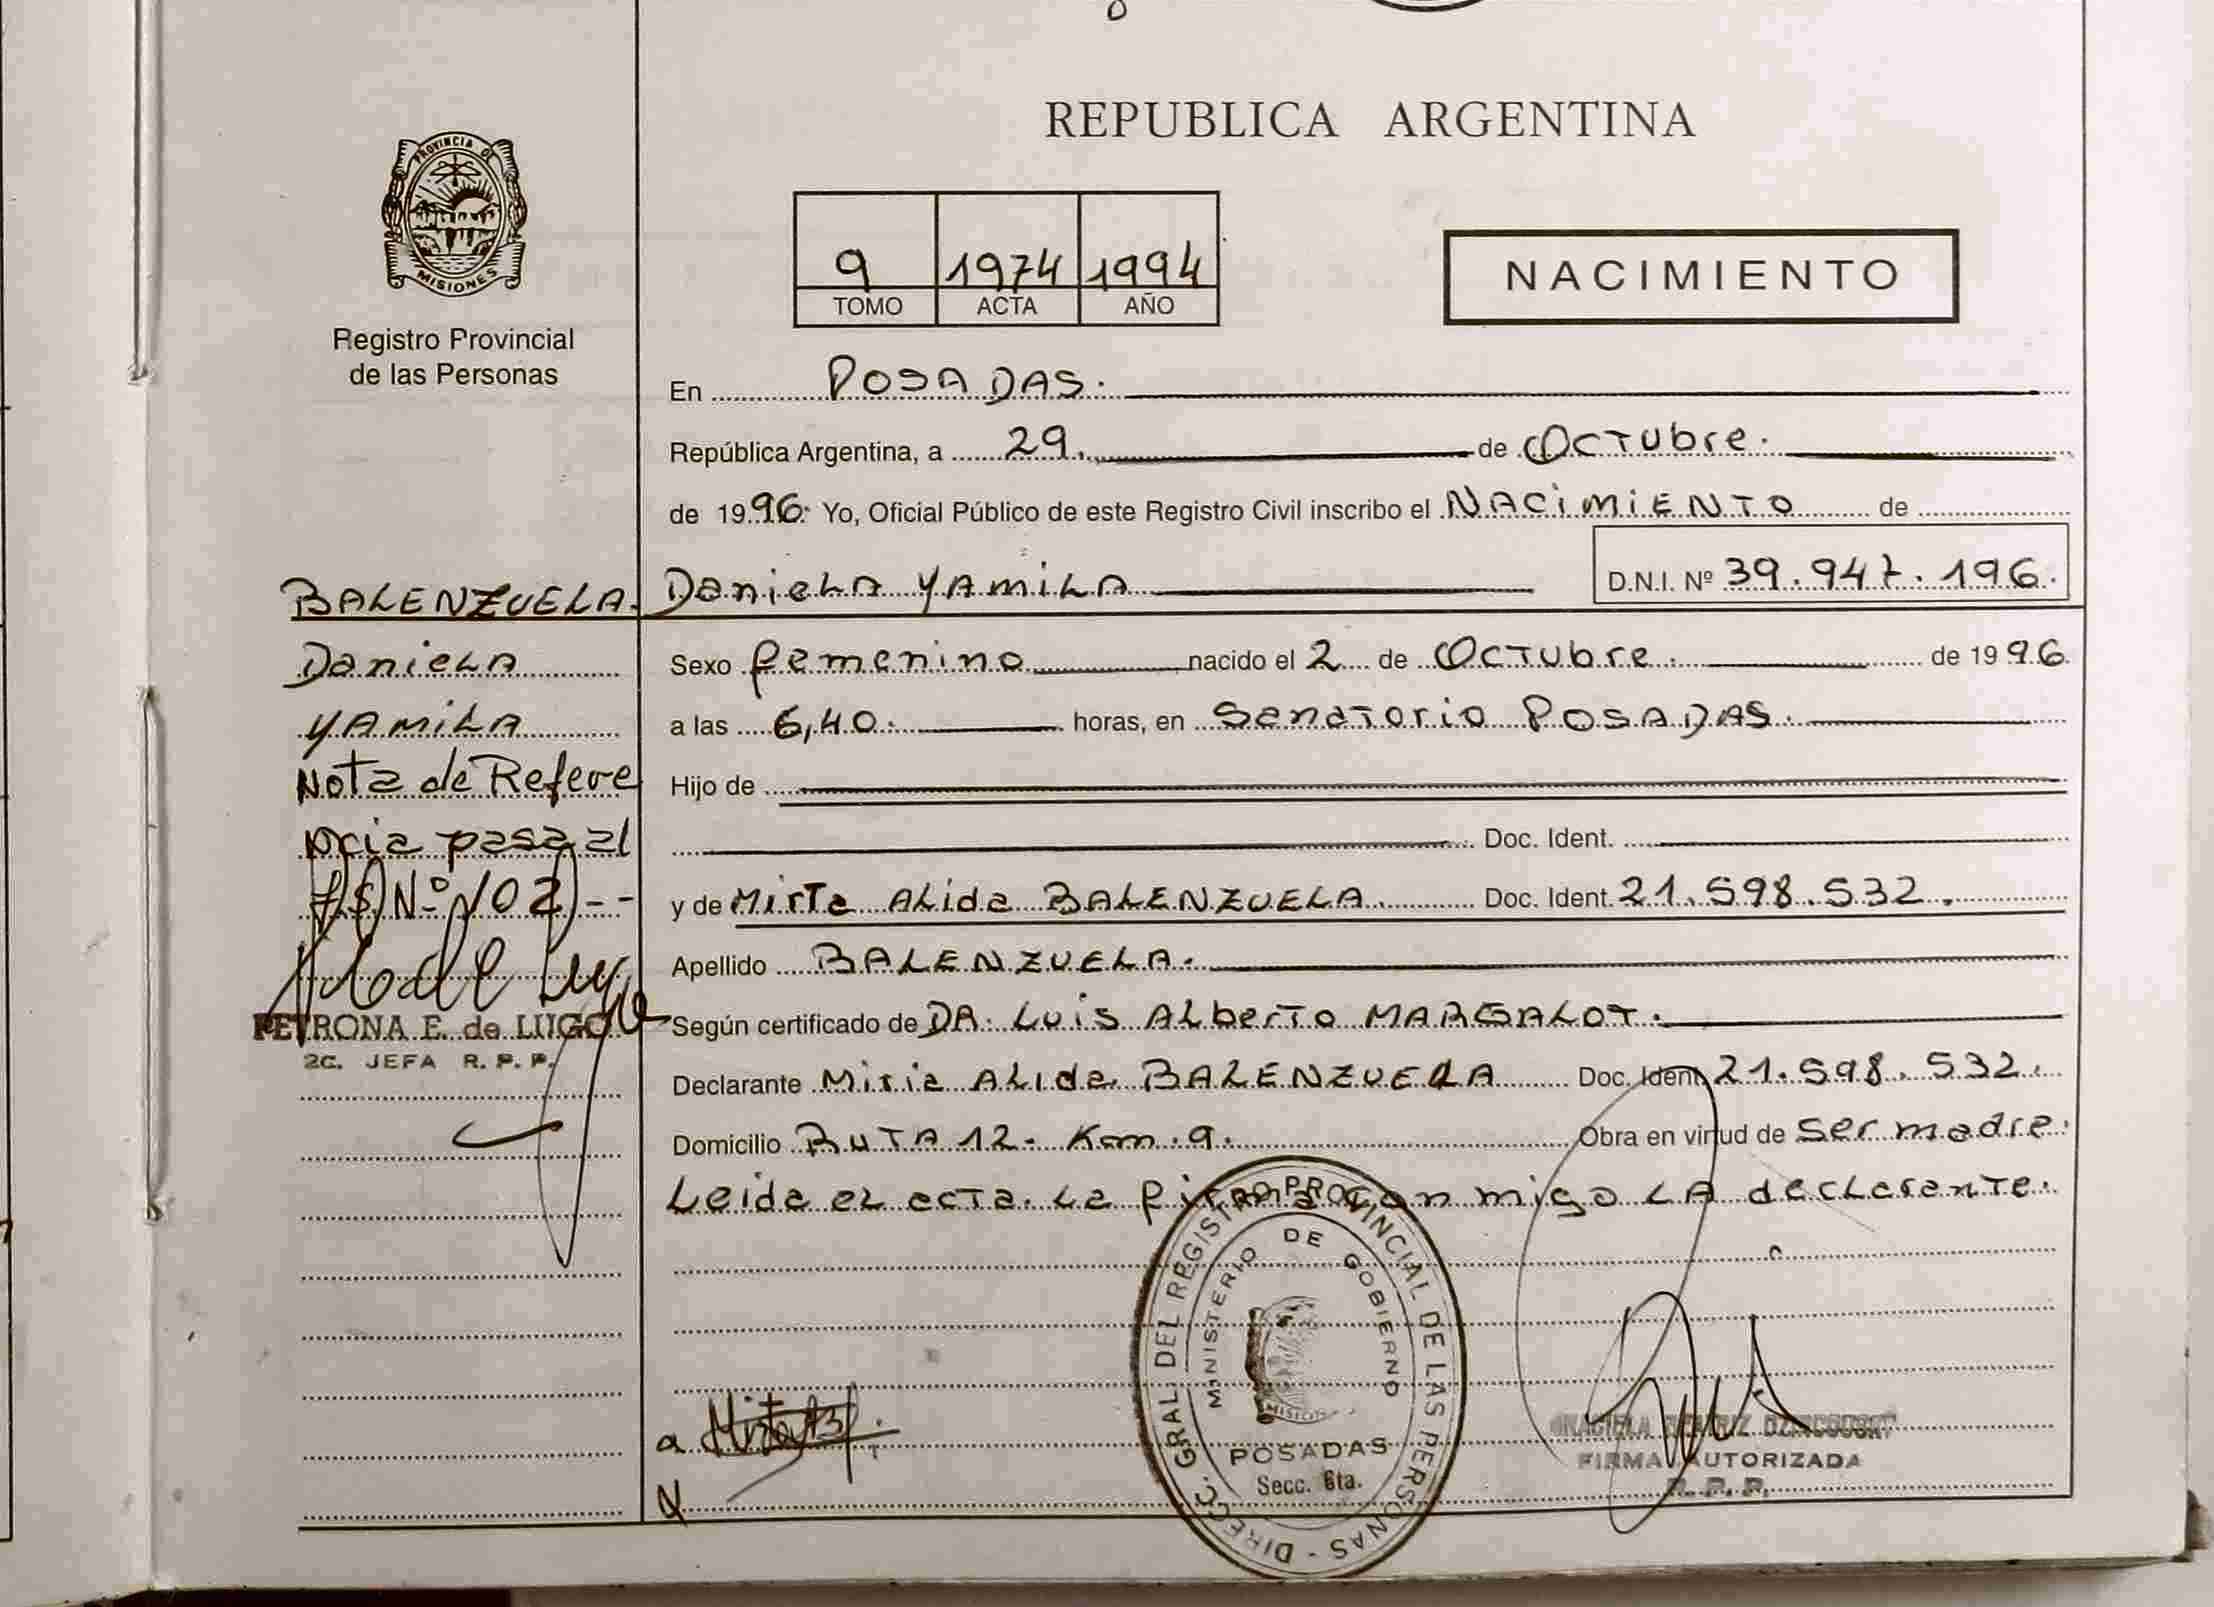 REPUBLICA ARGENTINA
PROVINCIA DE
MISIONES
Registro Provincial
de las Personas
9 1974 1994
TOMO ACTA AÑO
NACIMIENTO
En POSADAS.
República Argentina, a 29. de Octubre.
de 1996. Yo, Oficial Público de este Registro Civil inscribo el NACIMIENTO de
BALENZUELA. Daniela YAMILA D.N.I. Nº 39.947.196.
Daniela
YAMILA
Nota de Refere
ncia pasa al
Nº 102)--
PETRONA E. de LUGO
2C. JEFA R. P. P.
Sexo femenino nacido el 2 de Octubre. de 1996
a las 6,40. horas, en Sanatorio POSADAS.
Hijo de
Doc. Ident.
y de Mirta ALida BALENZUELA. Doc. Ident. 21.598.532.
Apellido BALENZUELA.
Según certificado de DR. Luis ALberto MARGALOT.
Declarante Mirta ALida BALENZUELA Doc. Ident. 21.598.532.
Domicilio RUTA 12. Km. 9. Obra en virtud de ser madre.
Leida el acta. La firma con migo LA declarante.
DIRECC. GRAL. DEL REGISTRO PROVINCIAL DE LAS PERSONAS -
MINISTERIO DE GOBIERNO
POSADAS
Secc. 6ta.
GRACIELA BEATRIZ
FIRMA AUTORIZADA
R. P. P.